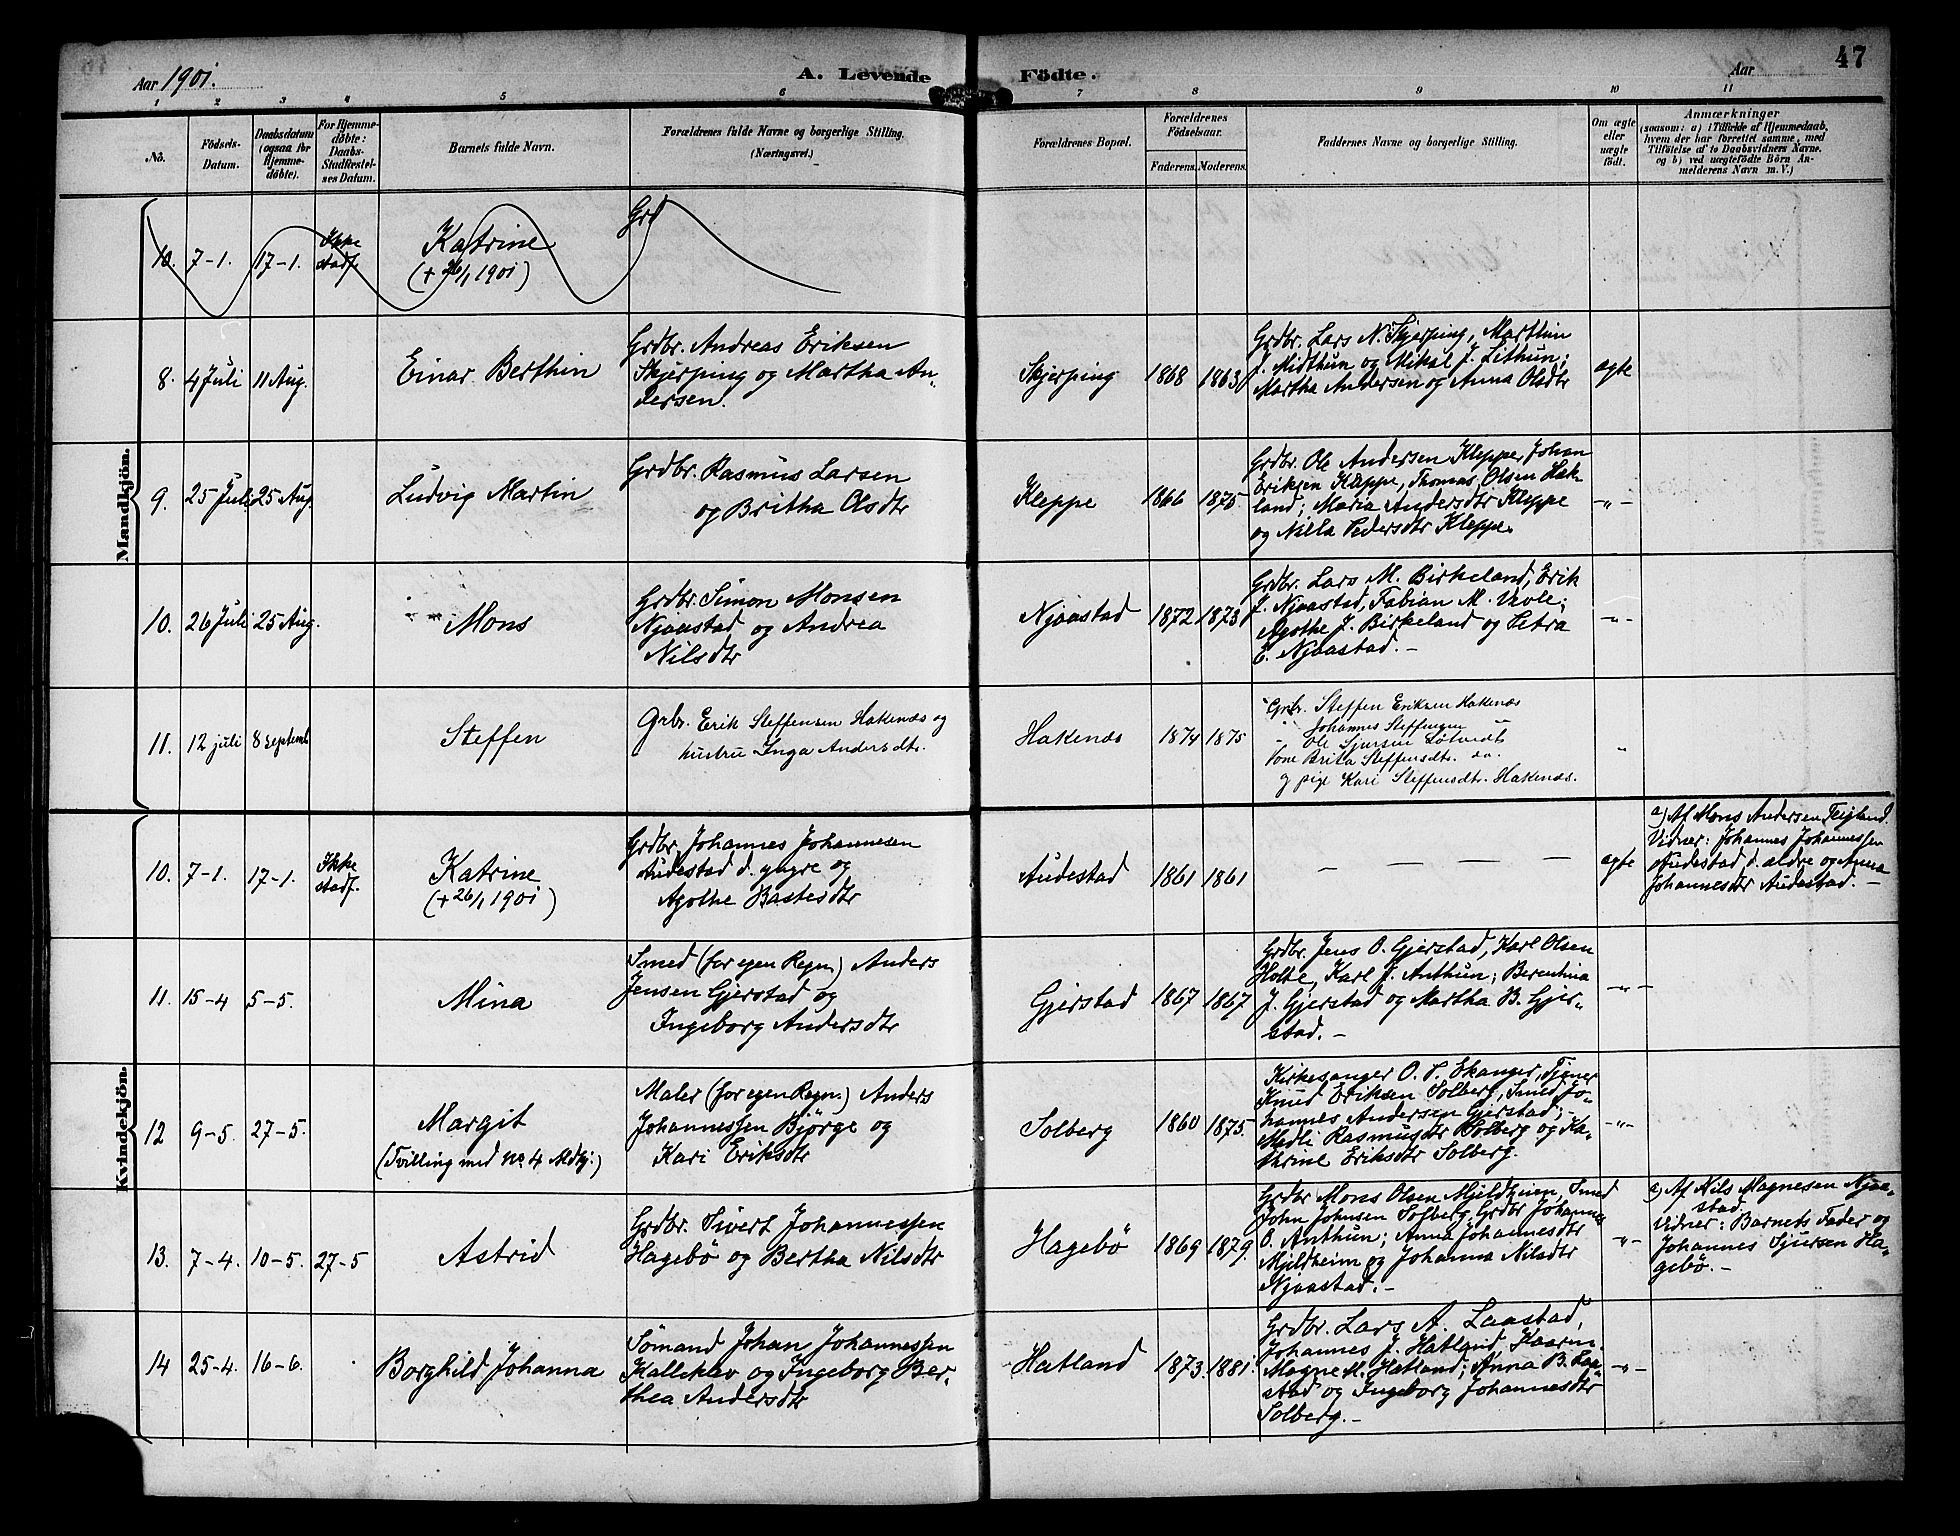 Aar 1901.
A. Levende Födte.
Aar
47
1 2 3 4 5 6 7 8 9 10 11
No.
Födsels-
Datum.
Daabsdatum
(ogsaa for
Hjemme-
döbte).
For Hjemme-
döbte:
Daabs-
Stadfæstel-
ses Datum.
Barnets fulde Navn.
Forældrenes fulde Navne og borgerlige Stilling.
(Næringsvei.)
Forældrenes Bopæl.
Forældrenes
Födselsaar.
Faderens. Moderens.
Faddernes Navne og borgerlige Stilling.
Om ægte
eller
uægte
födt.
Anmærkninger
(saasom: a) i Tilfælde af Hjemmedaab,
hvem der har forrettet samme, med
Tilföielse af to Daabsvidners Navne.
og b) ved uægtefödte Börn An-
melderens Navn m. V.)
Mandkjön.
10. 7-1. 17-1.
Ikke
stadf.
Katrine
(+ 26/1 1901)
Grd
8. 4 Juli 11 Aug.
Einar Berthin
Grdbr. Andreas Eriksen
Skjerping og Martha An-
dersen.
Skjerping 1868 1863
Grdbr. Lars N. Skjerping, Marthin
J. Midthun og Mikal J. Lithun;
Martha Andersen og Anna Olsdtr
ægte
9. 25 Juli 25 Aug.
Ludvig Martin
Grdbr. Rasmus Larsen
og Britha Olsdtr
Kleppe 1866 1875.
Grdbr. Ole Andersen Kleppe, Johan
Eriksen Kleppe, Thomas Olsen Hak-
land; Maria Andersdtr Kleppe
og Nilla Pedersdtr Kleppe.
-"-
10. 26 Juli 25 Aug.
Mons
Grdbr. Simon Monsen
Njaastad og Andrea
Nilsdtr
Njaastad 1872 1873
Grdbr. Lars M. Birkeland, Erik
J. Njaastad, Fabian M. Vevle;
Agothe J. Birkeland og Petra
E. Njaastad. -
-"-
11. 12 juli 8 septemb
Steffen
Grbr. Erik Steffensen Hakenæs og
hustru Inga Andersdtr.
Hakenæs 1874 1875
Grbr. Steffen Eriksen Hakenæs
" Johannes Steffensen "
" Ole SjursenLøtvedt
Kone Brita Steffensdtr. do.
og pige Kari Steffensdtr. Hakenæs.
"
Kvindekjön.
10. 7-1. 17-1.
Ikke
stadf.
Katrine
(+ 26/1 1901)
Grdbr. Johannes Johannesen
Audestad d. yngre og
Agothe Bastesdtr
Audestad 1861 1861
- - - -
ægte
a) Af Mons Andersen Teigland.
Vidner: Johannes Johannessen
Audestad d. ældre og Anna
Johannesdtr Audestad. -
11. 15-4 5-5.
Mina
Smed (for egen Regn.) Anders
Jensen Gjerstad og
Ingeborg Andersdtr
Gjerstad 1867 1867
Grdbr. Jens O. Gjerstad, Karl Olsen
Holte, Karl J. Anthun; Berentina
J. Gjerstad og Martha B. Gjer-
stad. -
-"-
12 9-5. 27-5.
Margit
(Tvilling med No. 4 Mdkj:)
Maler (for egen Regn.) Anders
Johannessen Björge og
Kari Eriksdtr
Solberg 1860 1875.
Kirkesanger O. S. Skanger, Tjener
Knud Eriksen Solberg, Smed Jo-
hannes Andersen Gjerstad;
Madli Rasmusdtr Solberg og Ka-
thrine Eriksdtr Solberg.
-"-
13. 7-4. 10-5. 27-5
Astrid
Grdbr. Sivert Johannessen
Hagebö og Bertha Nilsdtr
Hagebö 1869 1879.
Grdbr Mons Olsen Mjeldheim, Smed
John Johnsen Solberg, Grdbr Johannes
O. Anthun; Anna Johannesdtr
Mjeldheim og Johanna Nilsdtr
Njaastad. -
-"-
a) Af Nils Magnesen Njaa-
stad.
Vidner: Barnets Fader og
Johannes Sjursen Ha-
gebö. -
14 25-4. 16-6.
Borghild Johanna
Sömand Johan Johannessen
Kalleklev og Ingeborg Ber-
thea Andersdtr
Hatland 1873. 1881.
Grdbr. Lars A. Laastad,
Johannes J. Hatland, Kaarm.
Magne M. Hatland; Anna B. Laa-
stad og Ingeborg Johannesdtr
Solberg. -
-"-